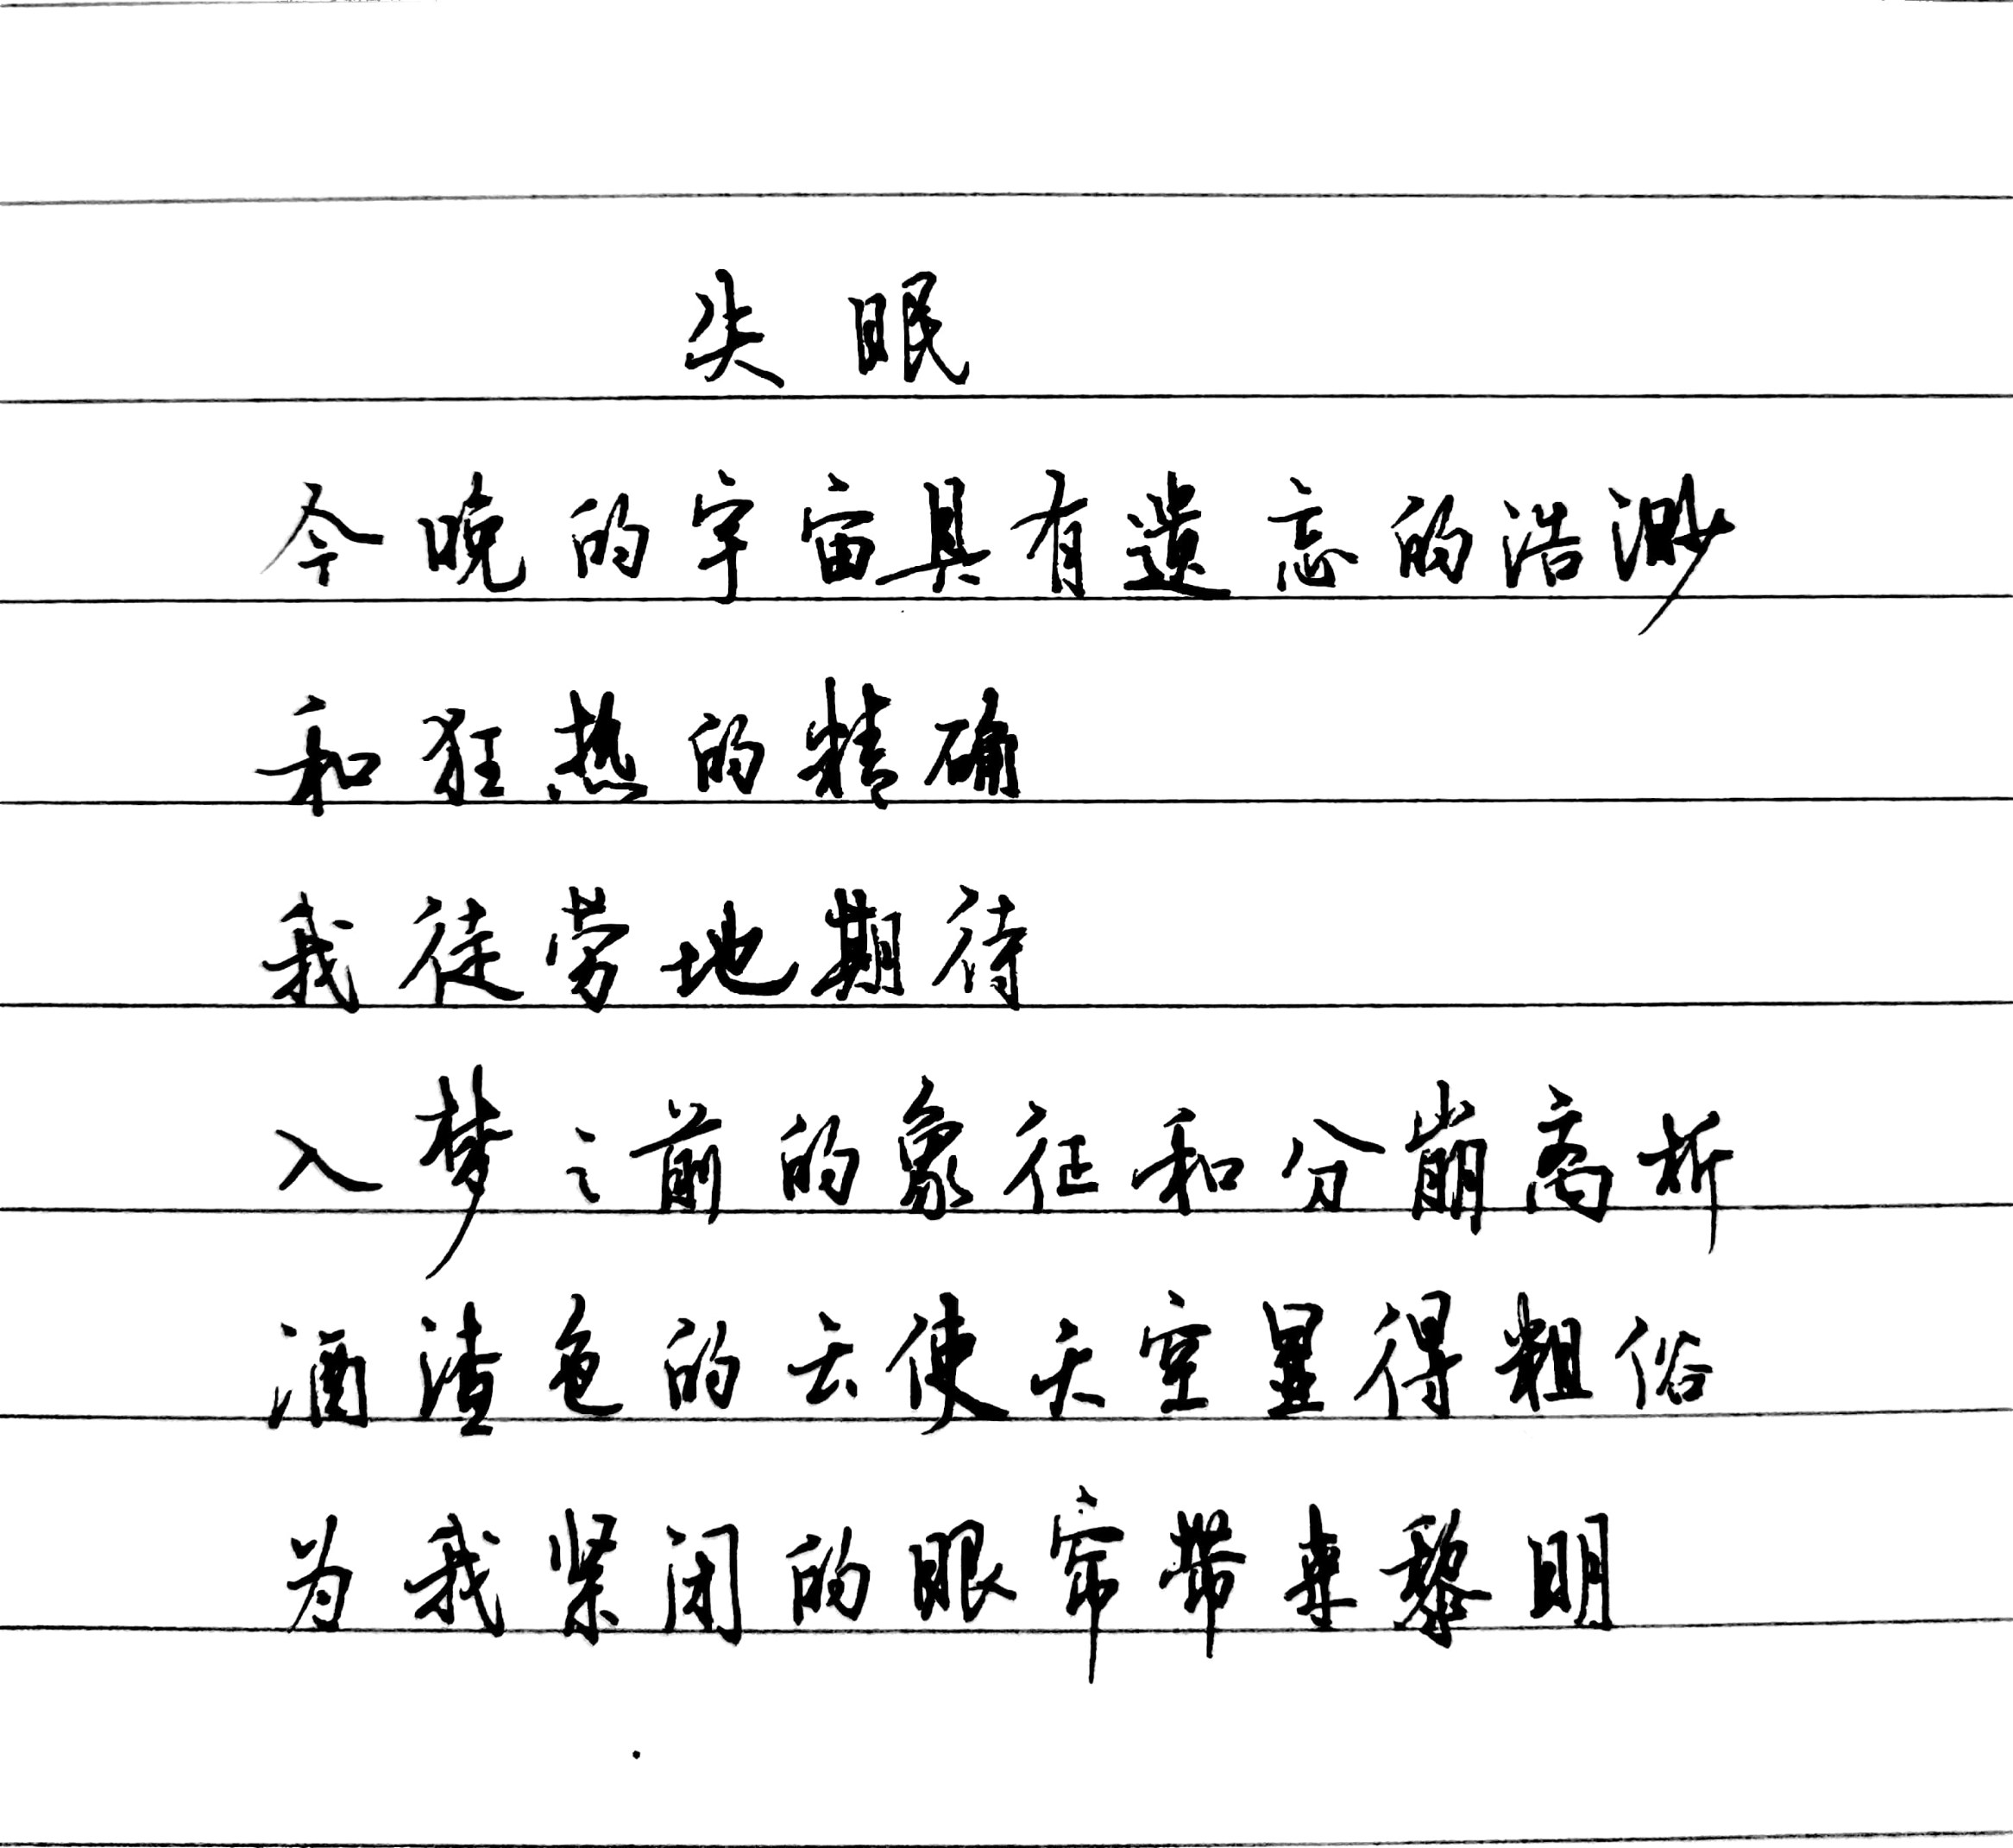 失眠
今晚的宇宙具有遗忘的浩渺
和狂热的精确
我徒劳地期待
入梦之前的象征和分崩离析
酒渣色的云使天空显得粗俗
为我紧闭的眼帘带来黎明